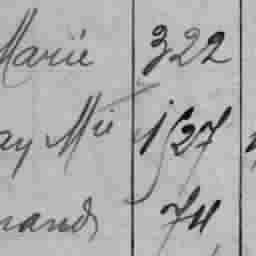 Marie 322
ay Mie 1527
nand 74